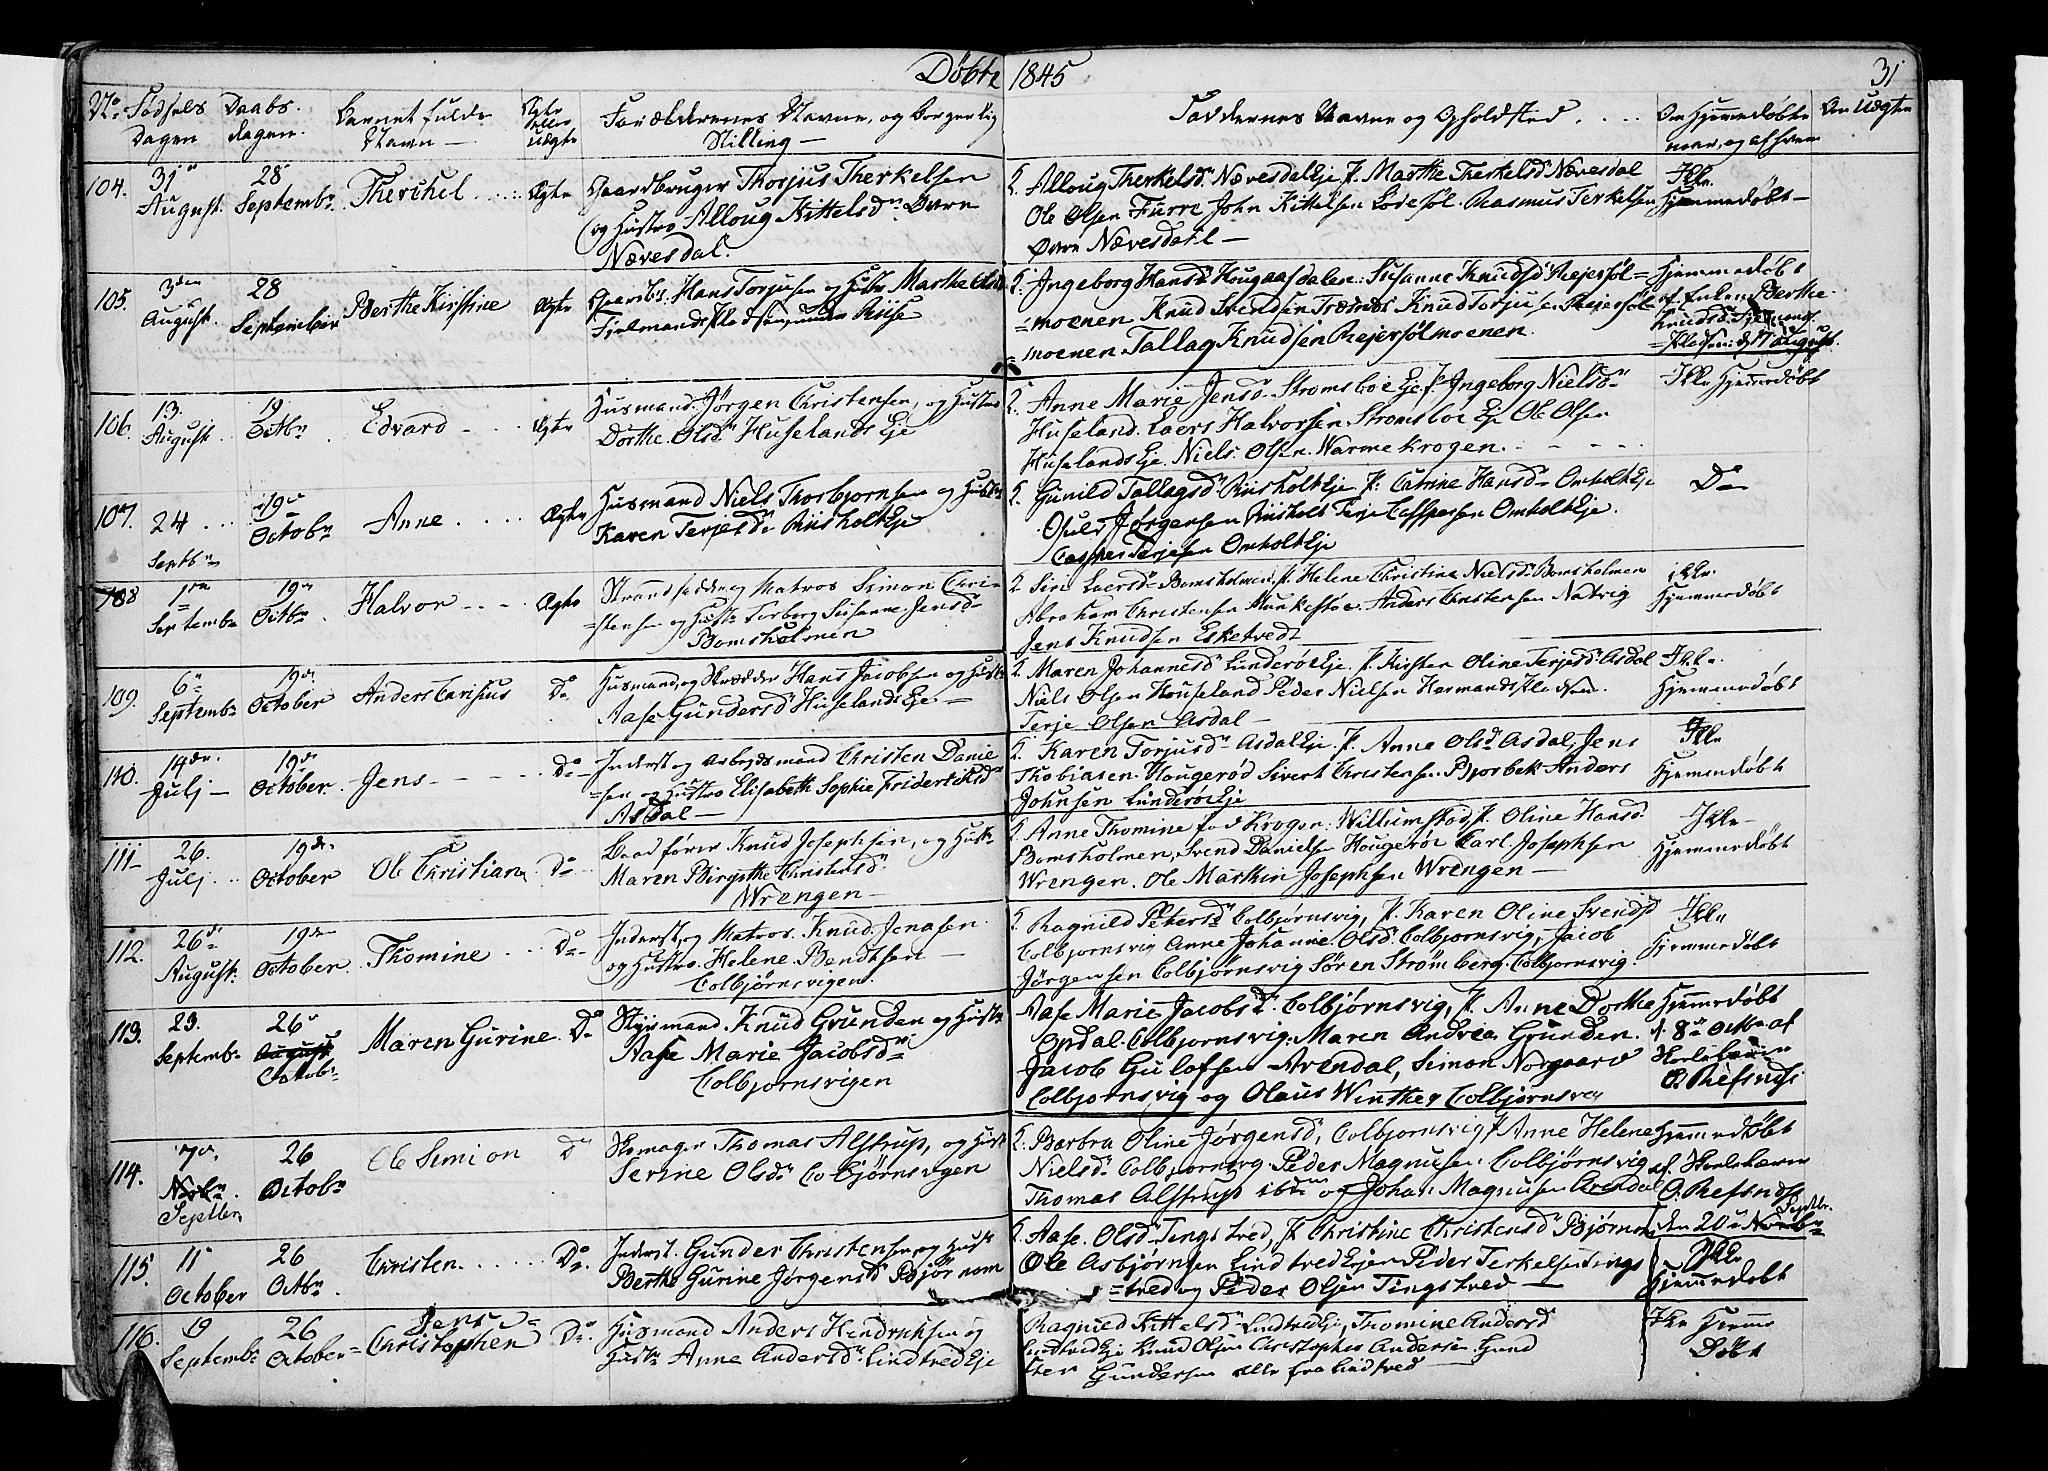 Döbte 1845
31
No Fødsels Dagen
Daabs dagen.
Barnet fulde Navn
Ægte eller uægte
Forældrenes Navne, og borgerlig Stilling
Faddernes Navne og Opholdsted
Om Hjemmedøbte naar, og af hvem
Om Uægte
104. 31 August. 28 Septembr. Therchel Ægte
Gaardbruger Thorjus Therkelsen
og Hustro Alloug Kittelsdr.
Nævesdal.
Alloug Therkelsdr Nævesdal Eje P. Marthe Therkelsd Nævesdal
Ole Olsen Furre John Kittelsen Lodesøl. Rasmus Terkelsen
Nævesdahl
Ikke Hjemmedøbt
105. 3den August. 28 September Berthe Kirstine Ægte
Hans Torjusen og Hust Marthe
under Riise
Ingeborg Hansd Hougaasdalen. Susanne Knudsd Rejersøl=
=moenen Knud Svendsen Knud Torjusen Rejersøl
=moenen Tallag Knudsen Rejersølmoenen.
Hjemmedøbt
af Enken Berthe
Knudsd
17 August.
106. 13. August. 19 Octbr Edvard Ægte
Husmand. Jörgen Christensen, og Hustro
Dorthe Olsdr Huselands Eje
Anne Marie Jensd. Stromsboe Eje P. Ingeborg Nielsdr
Huseland. Laers Halvorsen Stromsboe Eje Ole Olsen
Huselands Eje. Niels Olsen. Warmekrogen.
Ikke Hjemmedøbt
107. 24 Septbr 19 Octobr Anne Ægte
Husmand Niels Thorbjornsen og Hustr
Karen Terjesdr Riisholt Eje
Gunild Tallagsd Riisholt Eje. P. Catrine Hansdr Omholt Eje
Jørgensen Riisholt Terje Casspersen Omholt Eje.
Casper Terjesen Omholt Eje
Do
108 1ste Septembr 19 Octbr. Halvor Ægte
Strandsidder og Matros Simon Chri=
=stensen og Hustr Torborg Susanne Jensdr
Bomsholmen
Siri Laersdr Bomsholmen. P. Helene Christine Nielsd. Bomsholmen
Abraham Christensen Munkestøe. Anders Christensen Natvig
Jens Knudsen Esketvedt
ikke Hjemmedøbt
109. 6 Septembr 19 October Anders Do
Husmand, og Skrædder Hans Jacobsen og Hustr
Aase Gundersd Huselands Eje
Maren Johannesd Lunderöe Eje. P. Kirsten Oline Terjesd. Asdal
Niels Olsen Houseland Peder Nielsen
Terje Olsen Asdal
Ikke Hjemmedøbt
110. 14de Julj 19 October. Jens Do
Inderst og Arbejdsmand Christen Danie
=sen og Hustro Elisabeth Sophie Frideriksdr
Asdal
Karen Torjusdr Asdal Eje. P. Anne Olsdr Asdal, Jens
Thobiasen Hougerød Sivert Christensen Bjorbek Anders
Johnsen Lunderöe Eje
Ikke Hjemmedøbt
111 26. Julj 19de October Ole Christian Do
Baadfører Knud Josephsen, og Hust
Maren Birgithe Christensdr
Wrengen
Anne Thomine fød Kroger. Willumstad P. Oline Hansd.
Bomsholmen, Svend Danielsen Hougeröe Carl Josephsen
Wrengen. Ole Martin Josephsen Wrengen
Ikke Hjemmedøbt
112. 26de August. 19de October. Thomine Do
Inderst, og Matros. Knud Jonasen
og Hustro. Helene Bendtsen
Colbjørnsvigen.
Ragnild Petersdr Colbjørnsvig, P. Karen Oline Svendsd
Colbjornsvig Anne Johanne Olsd. Colbjornsvig, Jacob
Jörgensen Colbjørnsvig Søren Strömberg. Colbjornsvig.
Ikke Hjemmedøbt
113. 23. Septembr 26 August Octobr Maren Gurine. Do
Styrmand. Knud Grunden og Hustr
Aase Marie Jacobsdr
Colbjornsvigen
Aase Marie Jacobsdr Colbjørnsvig, P. Anne Dorthe
Opdal. Colbjornsvig. Maren Andrea Grunden.
Jacob Gulofsen Arendal, Simon Norgaard
Colbjornsvig og Olaus Winther Colbjörnsvig
Hjemmedøbt
d. 8de Octbr af
Skolelærer
O. Refsnds
114. 7de Novbr. Septbr 26 Octobr Ole Simion Do
Skomager Thomas Alstrup, og Hust
Serine Olsdr Colbjörnsvigen
Barbra Oline Jörgensd, Colbjornsvig P. Anne Helene
Nielsdr Colbjornsvig. Peder Magnusen Colbjörnsvig
Thomas Alstrup ibdm og Johan Magnusen Arendal
Hjemmedøbt
af Skolelærer
O. Refsnds
den 20 Novbr Septbr.
115. 11 October 26 Octbr. Christen Do
Inderst. Gunder Christensen og Hust
Berthe Gurine Jørgensd Bjørnom
Aase Olsd. Tingstved, P. Christine Christensd Bjørnom
Ole Asbjørnsen Lindtved Ejen Peder Terkelsen Tings
=tved og Peder Olsen Tingstved
Ikke Hjemmedøbt
116. 19 Septembr 26 October Jens Christophen Do.
Husmand Anders Hendriksen og
Hustr Anne Andersdr Lindtved Eje
Ragnild Kittelsd Lindtved Eje, Thomine Andersd
Lindtved Eje Knud Olsen Christopher Andersen
Gundersen alle fra Lindtved
Ikke Hjemme Døbt